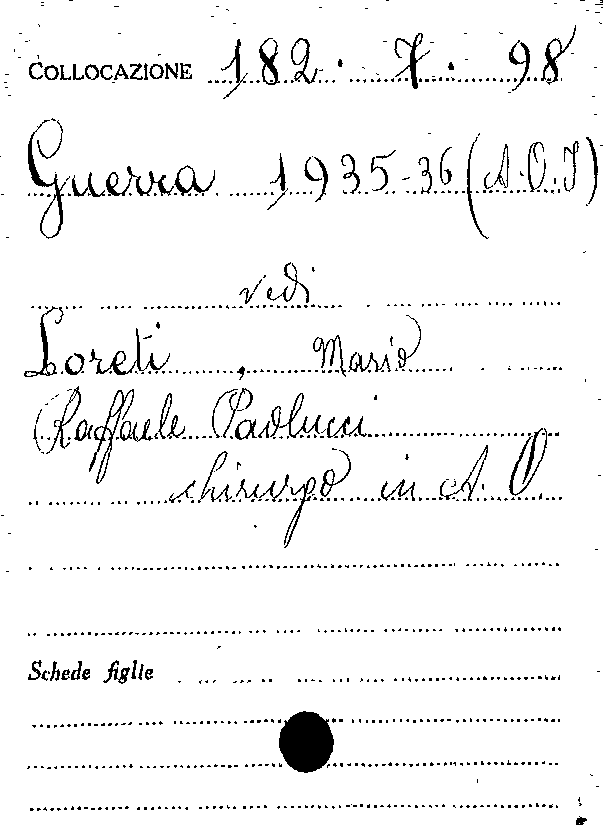 COLLOCAZIONE 182. 7. 98
Guerra 1935-36 (A.O.I)
vedi
Loreti, Mario
Raffaele Paolucci
chirurgo in A. O.
Schede figlie